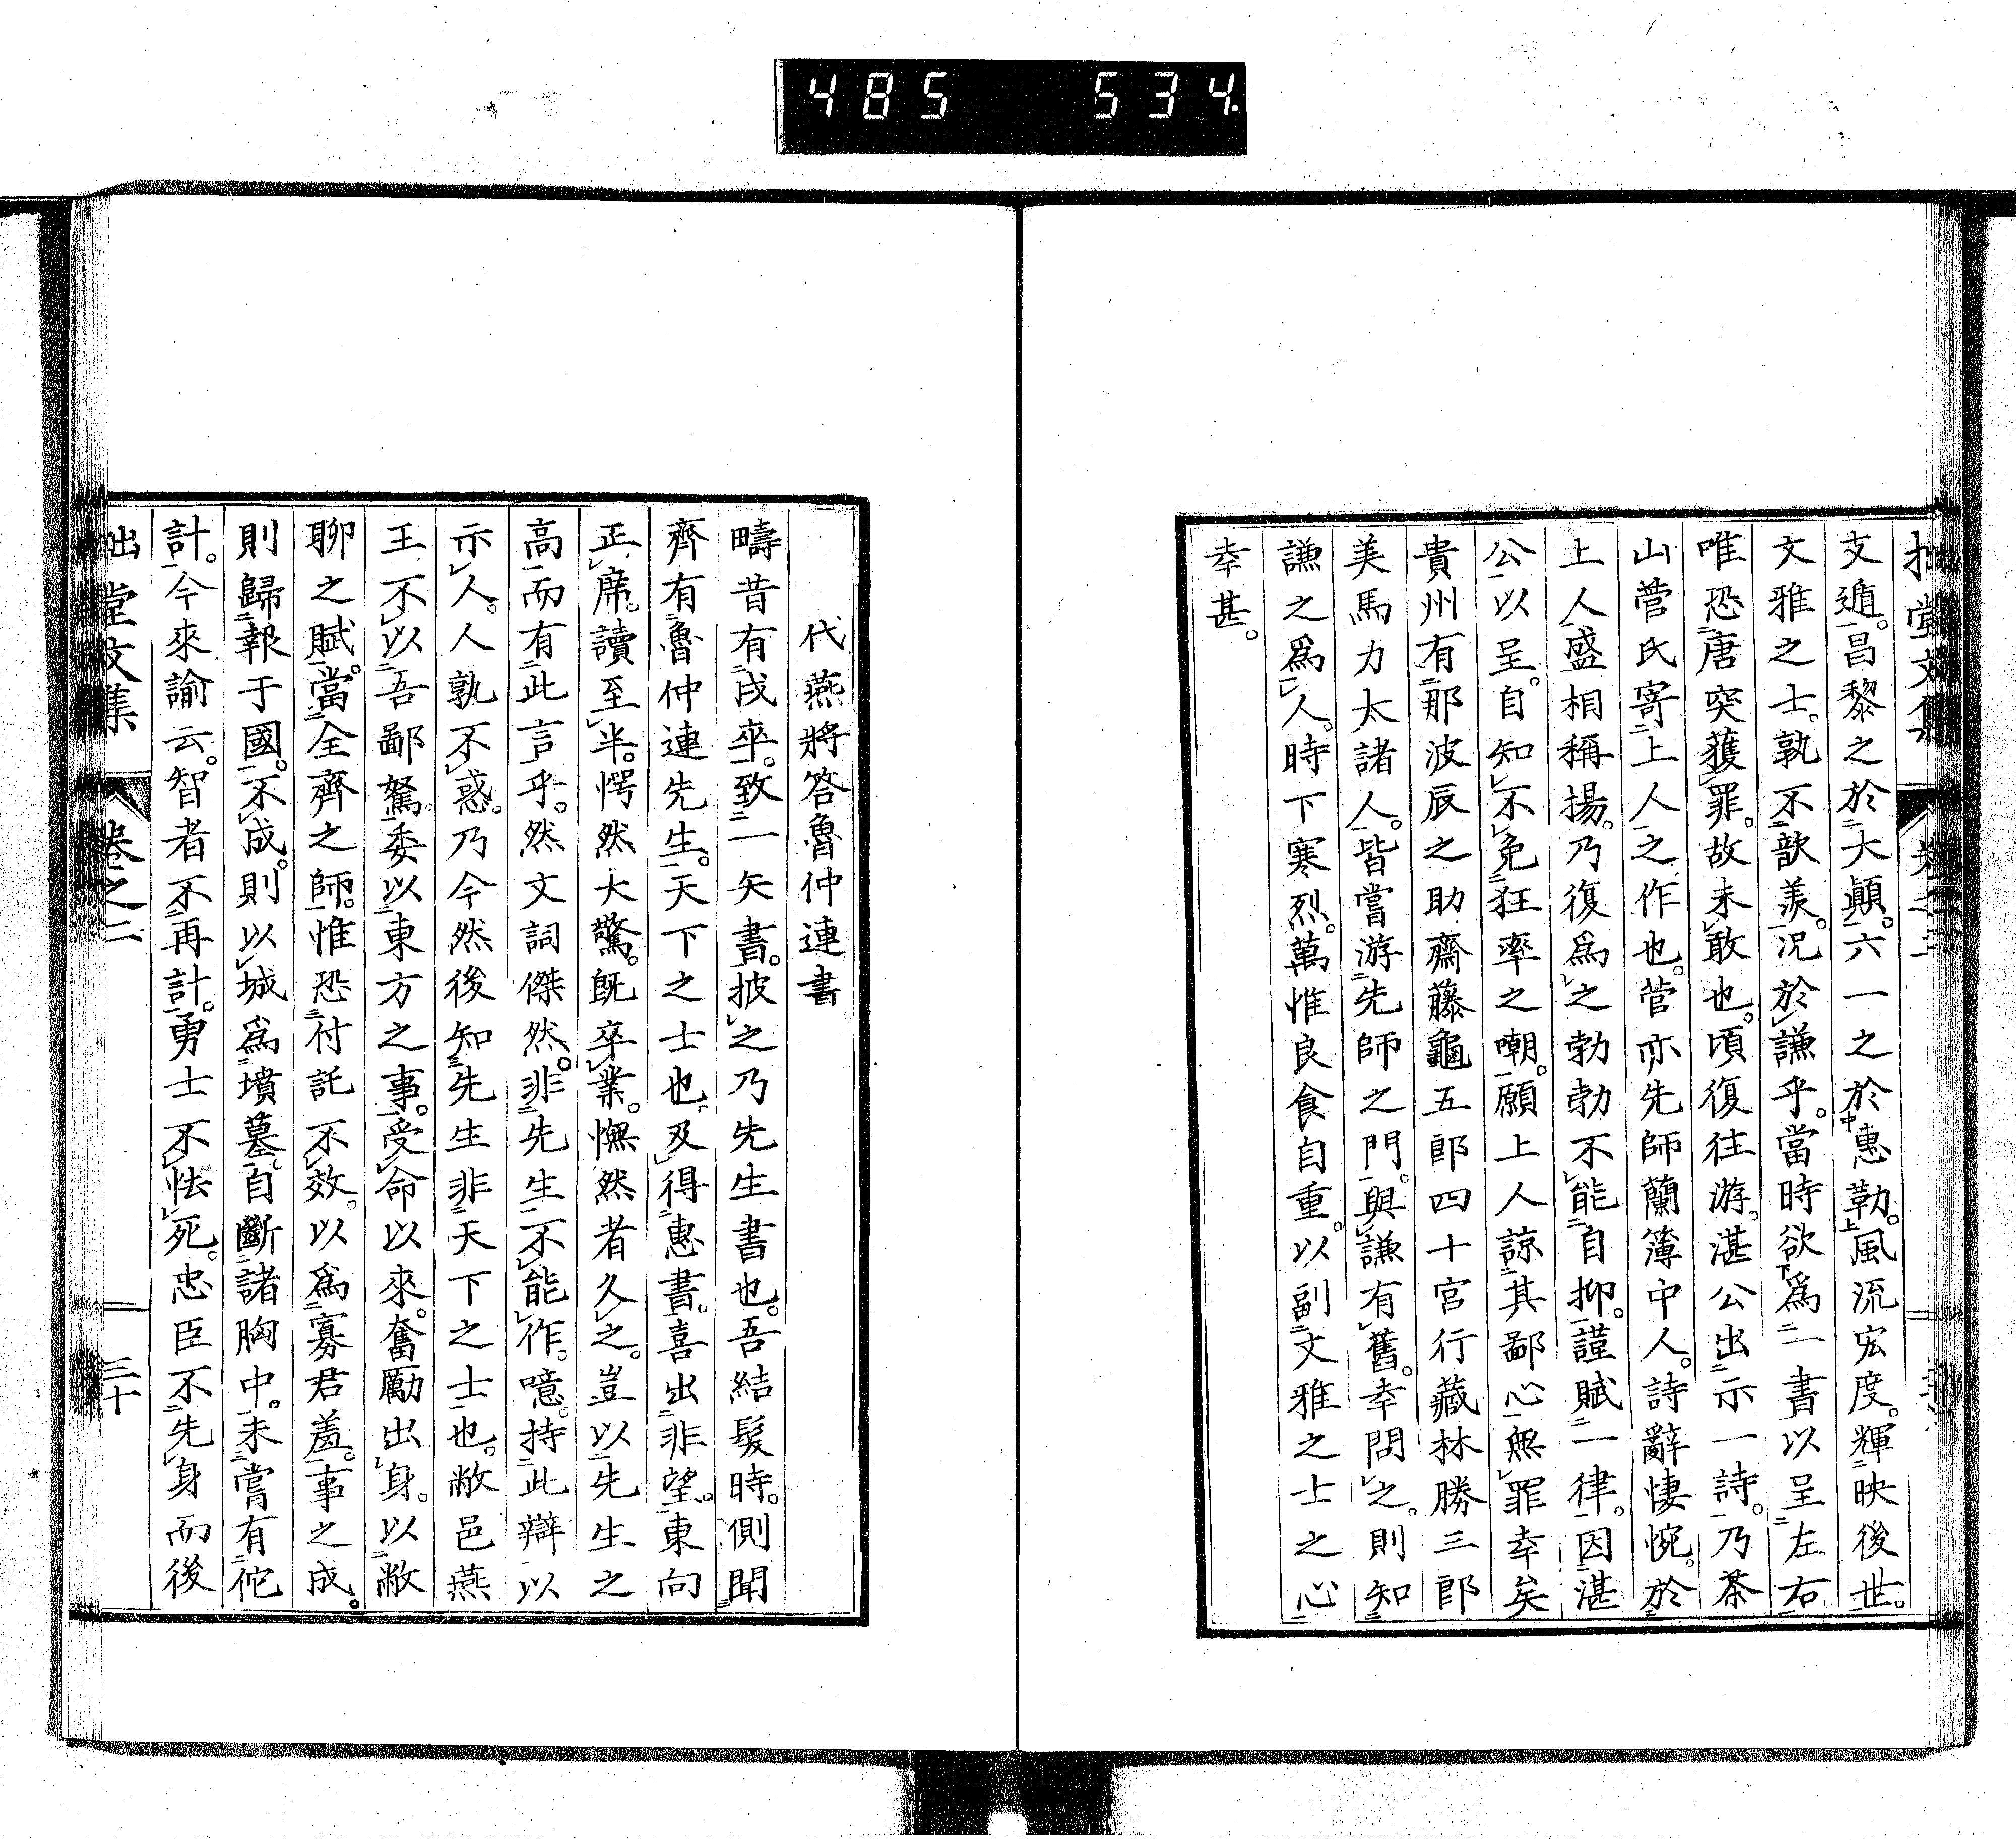 485 534
拙堂文集 卷之二
支遁。昌黎之於大顚。六一之於惠勤。風流宏度。輝映後世。
文雅之士。孰不歆羨。況於謙乎。當時欲爲一書以呈左右
唯恐唐突獲罪。故未敢也。頃復往游。湛公出示一詩。乃茶
山菅氏寄上人之作也。菅亦先師蘭簿中人。詩辭悽惋。於
上人盛相稱揚。乃復爲之勃勃不能自抑。謹賦一律。因湛
公以呈。自知不免狂率之嘲。願上人諒其鄙心無罪幸矣
貴州有那波辰之助齋藤龜五郎四十宮行藏林勝三郎
美馬力太諸人。皆嘗游先師之門。與謙有舊。幸問之。則知
謙之爲人。時下寒烈。萬惟良食自重。以副文雅之士之心
幸甚。
代燕將答魯仲連書
疇昔有戍卒。致一矢書。披之乃先生書也。吾結髮時。側聞
齊有魯仲連先生。天下之士也。及得惠書。喜出非望。東向
正席。讀至半。愕然大驚。既卒業。憮然者久之。豈以先生之
高而有此言乎。然文詞傑然。非先生不能作。噫。持此辯以
示人。人孰不惑。乃今然後知先生非天下之士也。敝邑燕
王不以吾鄙駑。委以東方之事。受命以來。奮勵出身。以敝
聊之賦。當全齊之師。惟恐付託不效。以爲寡君羞。事之成。
則歸報于國。不成。則以城爲墳墓。自斷諸胸中。未嘗有佗
計。今來諭云。智者不再計。勇士不怯死。忠臣不先身而後
拙堂文集 卷之二 三十